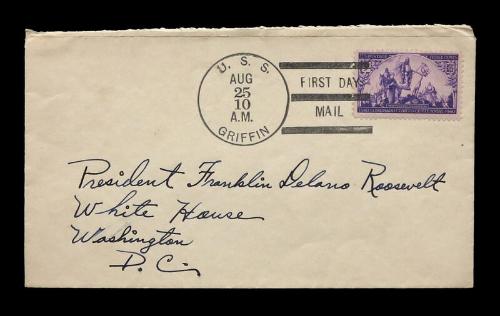 U. S. S.
AUG
25
10
A.M.
GRIFFIN
FIRST DAY
MAIL
President Franklin Delano Roosevelt
White House
Washington
D. C.